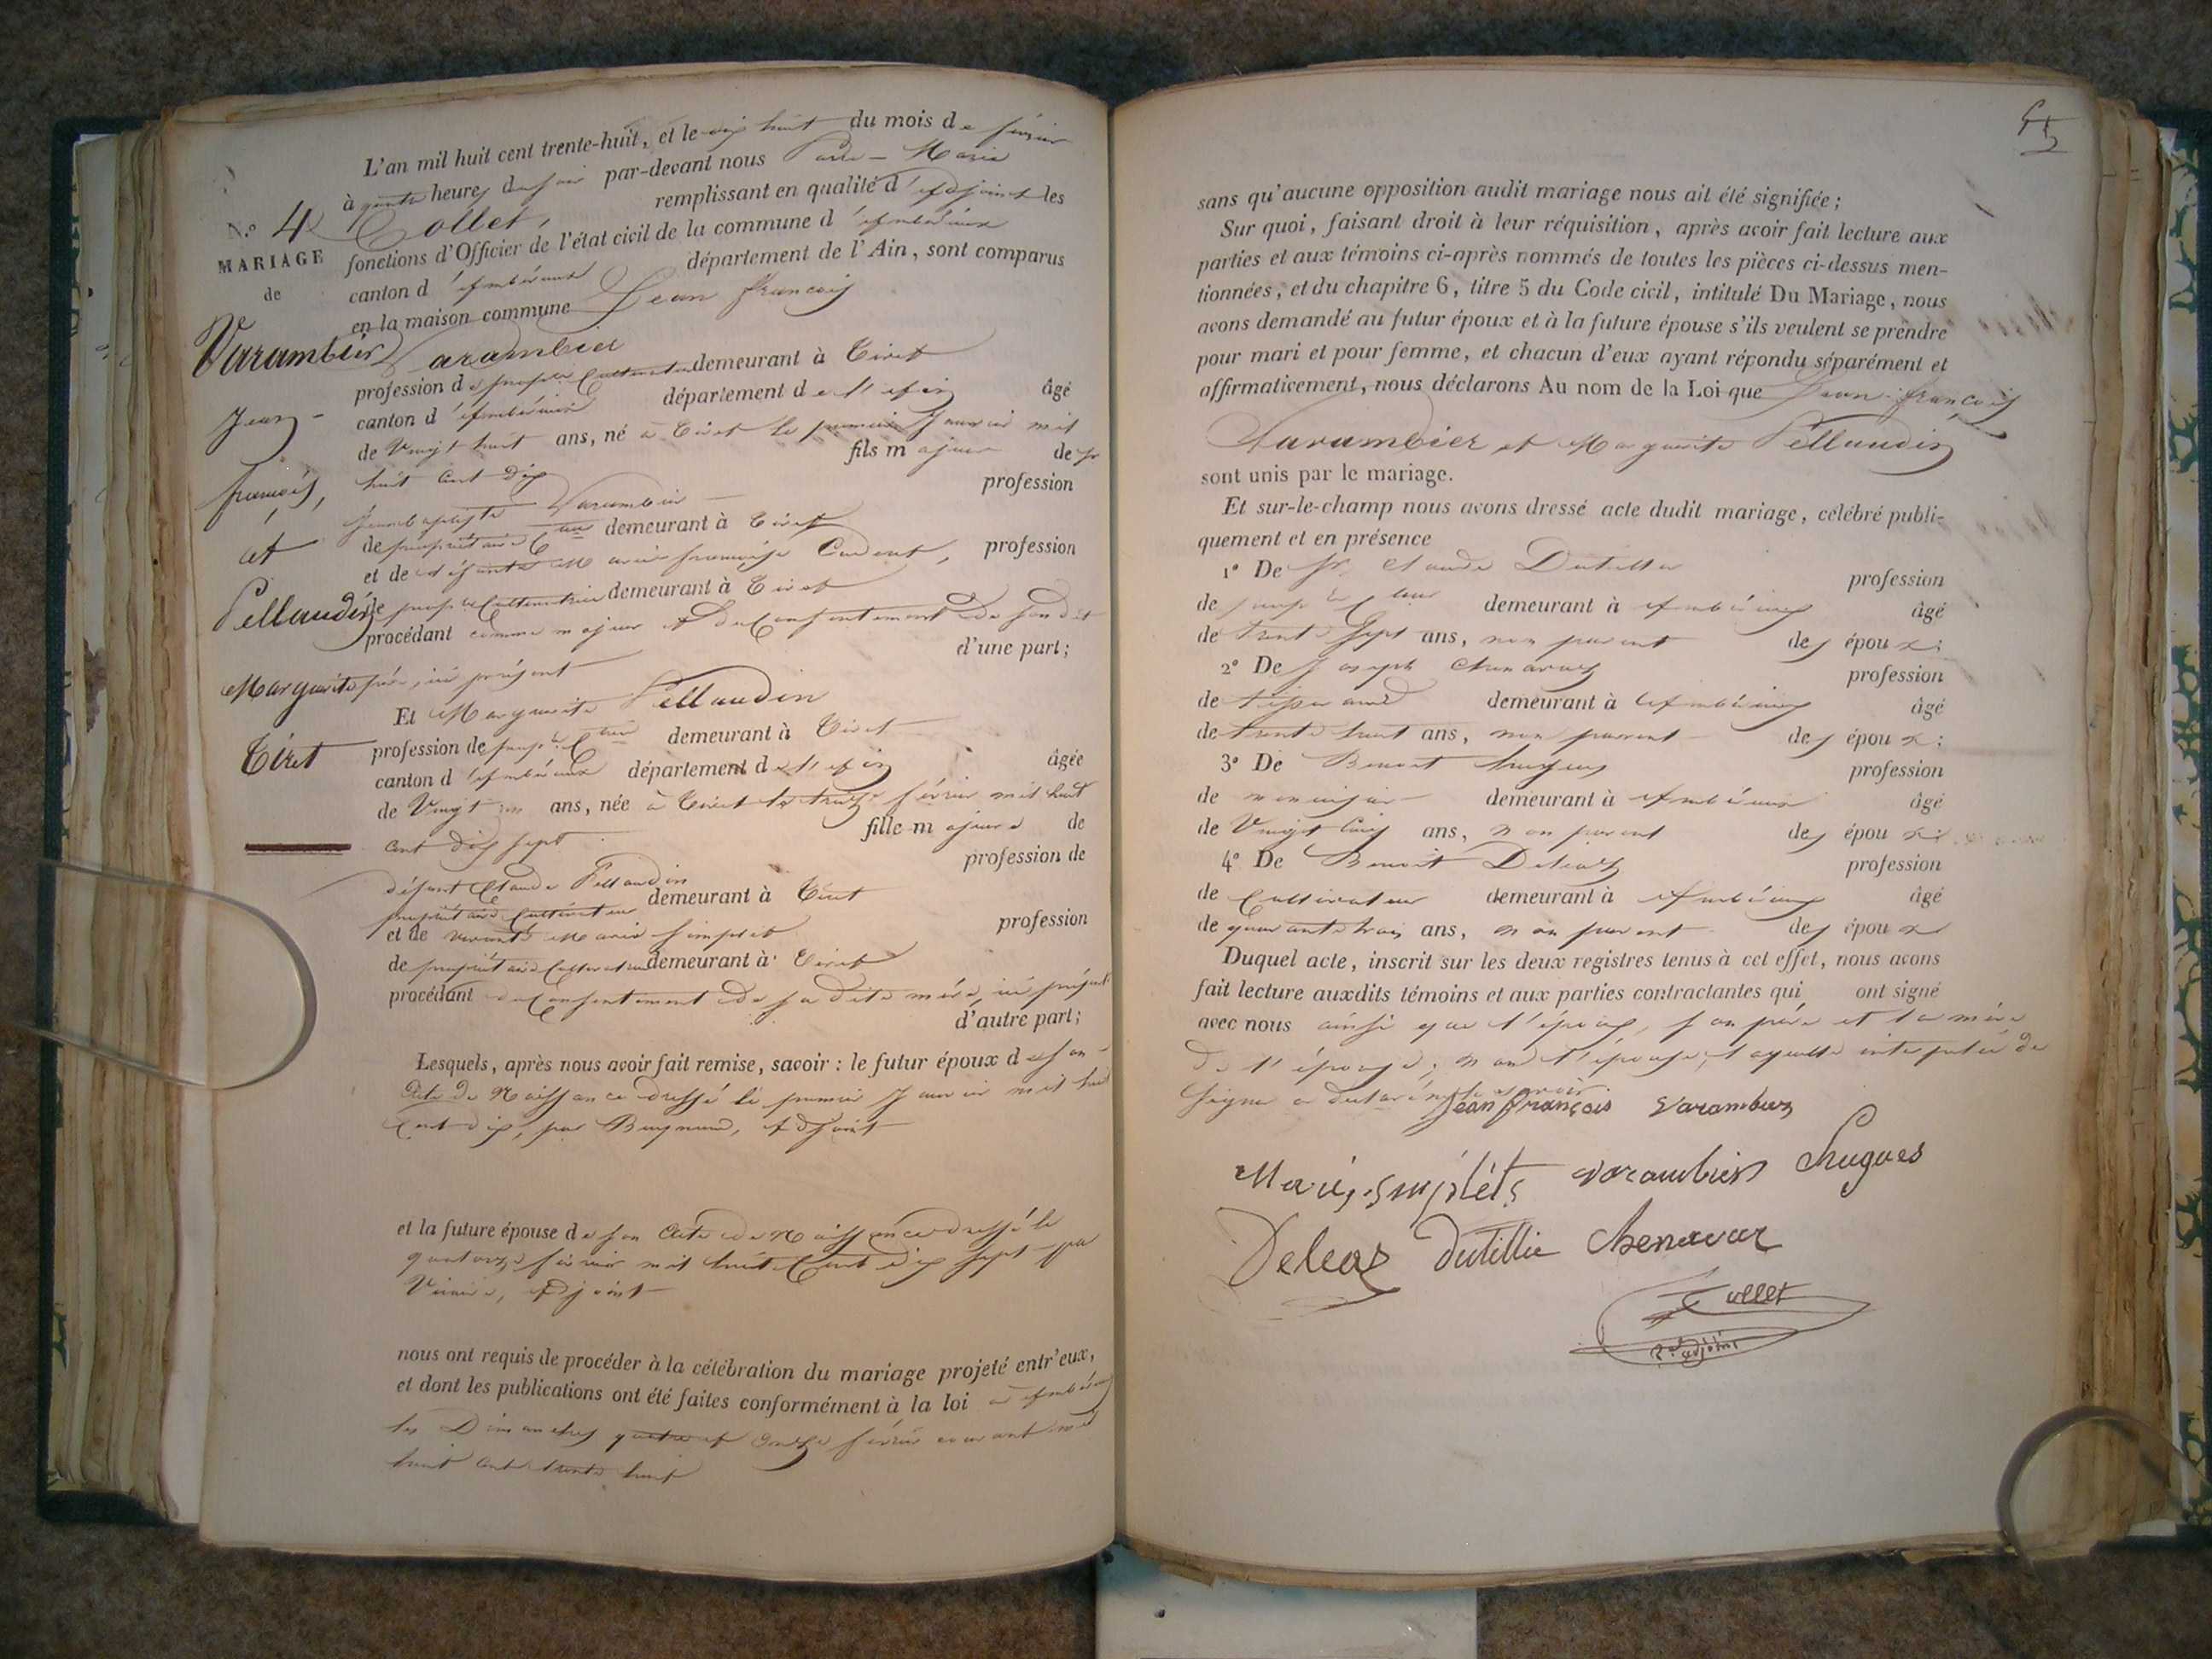 N.o 4
MARIAGE
de
Varambier
Jean-
françois,
et
Pellaudin
Marguerite
Tiret
L'an mil huit cent trente-huit, et le dix huit du mois de février
à quatre heures du soir par-devant nous Marie
Collet, remplissant en qualité d'adjoint les
fonctions d'Officier de l'état civil de la commune d'Ambérieux
canton d'Ambérieux département de l'Ain, sont comparus
en la maison commune Jean François
Varambier
profession de prop.re Cultivateur demeurant à Tiret
canton d'Ambérieux département de l'Ain âgé
de Vingt huit ans, né à Tiret le premier Janvier mil
huit cent dix fils majeur de
Jean baptiste Varambier profession
de propriétaire C.teur demeurant à Tiret
et de défunte Marie françoise profession
de prop.re Cultivatrice demeurant à Tiret
procédant comme majeur et du Consentement de son dit
père, ici présent d'une part;
Et Marguerite Pellaudin
profession de prop.re demeurant à Tiret
canton d'Ambérieux département de l'Ain âgée
de Vingt un ans, née à Tiret le treize février mil huit
cent dix sept fille majeure de
défunt Claude Pellaudin profession de
propriétaire Cultivateur demeurant à Tiret
et de vivante Marie Simplet profession
de propriétaire Cultivateur demeurant à Tiret
procédant du Consentement de sa dite mère, ici présente
d'autre part;
Lesquels, après nous avoir fait remise, savoir : le futur époux de son
Acte de Naissance dressé le premier Janvier mil huit
Cent dix, par Adjoint
et la future épouse de son Acte de Naissance dressé le
quatorze février mil huit Cent dix sept par
Adjoint
nous ont requis de procéder à la célébration du mariage projeté entr'eux,
et dont les publications ont été faites conformément à la loi à Ambérieux
les Dimanches quatre et Onze février courant mil
huit cent trente huit
sans qu'aucune opposition audit mariage nous ait été signifiée;
Sur quoi, faisant droit à leur réquisition, après avoir fait lecture aux
parties et aux témoins ci-après nommés de toutes les pièces ci-dessus men-
tionnées, et du chapitre 6, titre 5 du Code civil, intitulé Du Mariage, nous
avons demandé au futur époux et à la future épouse s'ils veulent se prendre
pour mari et pour femme, et chacun d'eux ayant répondu séparément et
affirmativement, nous déclarons Au nom de la Loi que Jean-françois
Varambier et Marguerite Pellaudin
sont unis par le mariage.
Et sur-le-champ nous avons dressé acte dudit mariage, célébré publi-
quement et en présence
1o De Sr. Claude Dutillie profession
de prop.re C.teur demeurant à Ambérieux âgé
de trente Sept ans, non parent des époux;
2o De Joseph Chenavaz profession
de tisserand demeurant à Ambérieux âgé
de trente huit ans, non parent des époux;
3o De Benoit hugues profession
de menuisier demeurant à Ambérieux âgé
de Vingt Cinq ans, non parent des époux;
4o De Benoit Deleaz profession
de Cultivateur demeurant à Ambérieux âgé
de quarante trois ans, non parent des époux
Duquel acte, inscrit sur les deux registres tenus à cet effet, nous avons
fait lecture auxdits témoins et aux parties contractantes qui ont signé
avec nous ainsi que l'époux, son père et la mère
de l'épouse; non l'épouse, laquelle interpelée de
signer a déclaré ne le savoir.
Jean François varambier
Marie simplets varambier hugues
Deleaz dutillie chenavaz
Collet
adjoint